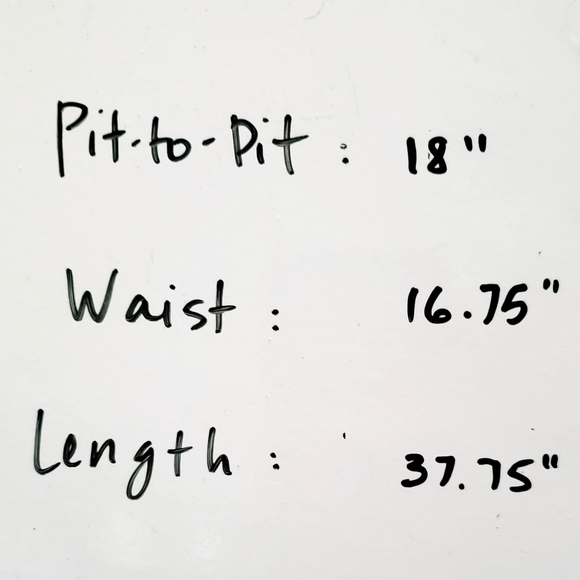 Pit-to-Pit : 18"
Waist : 16.75"
Length : 37.75"